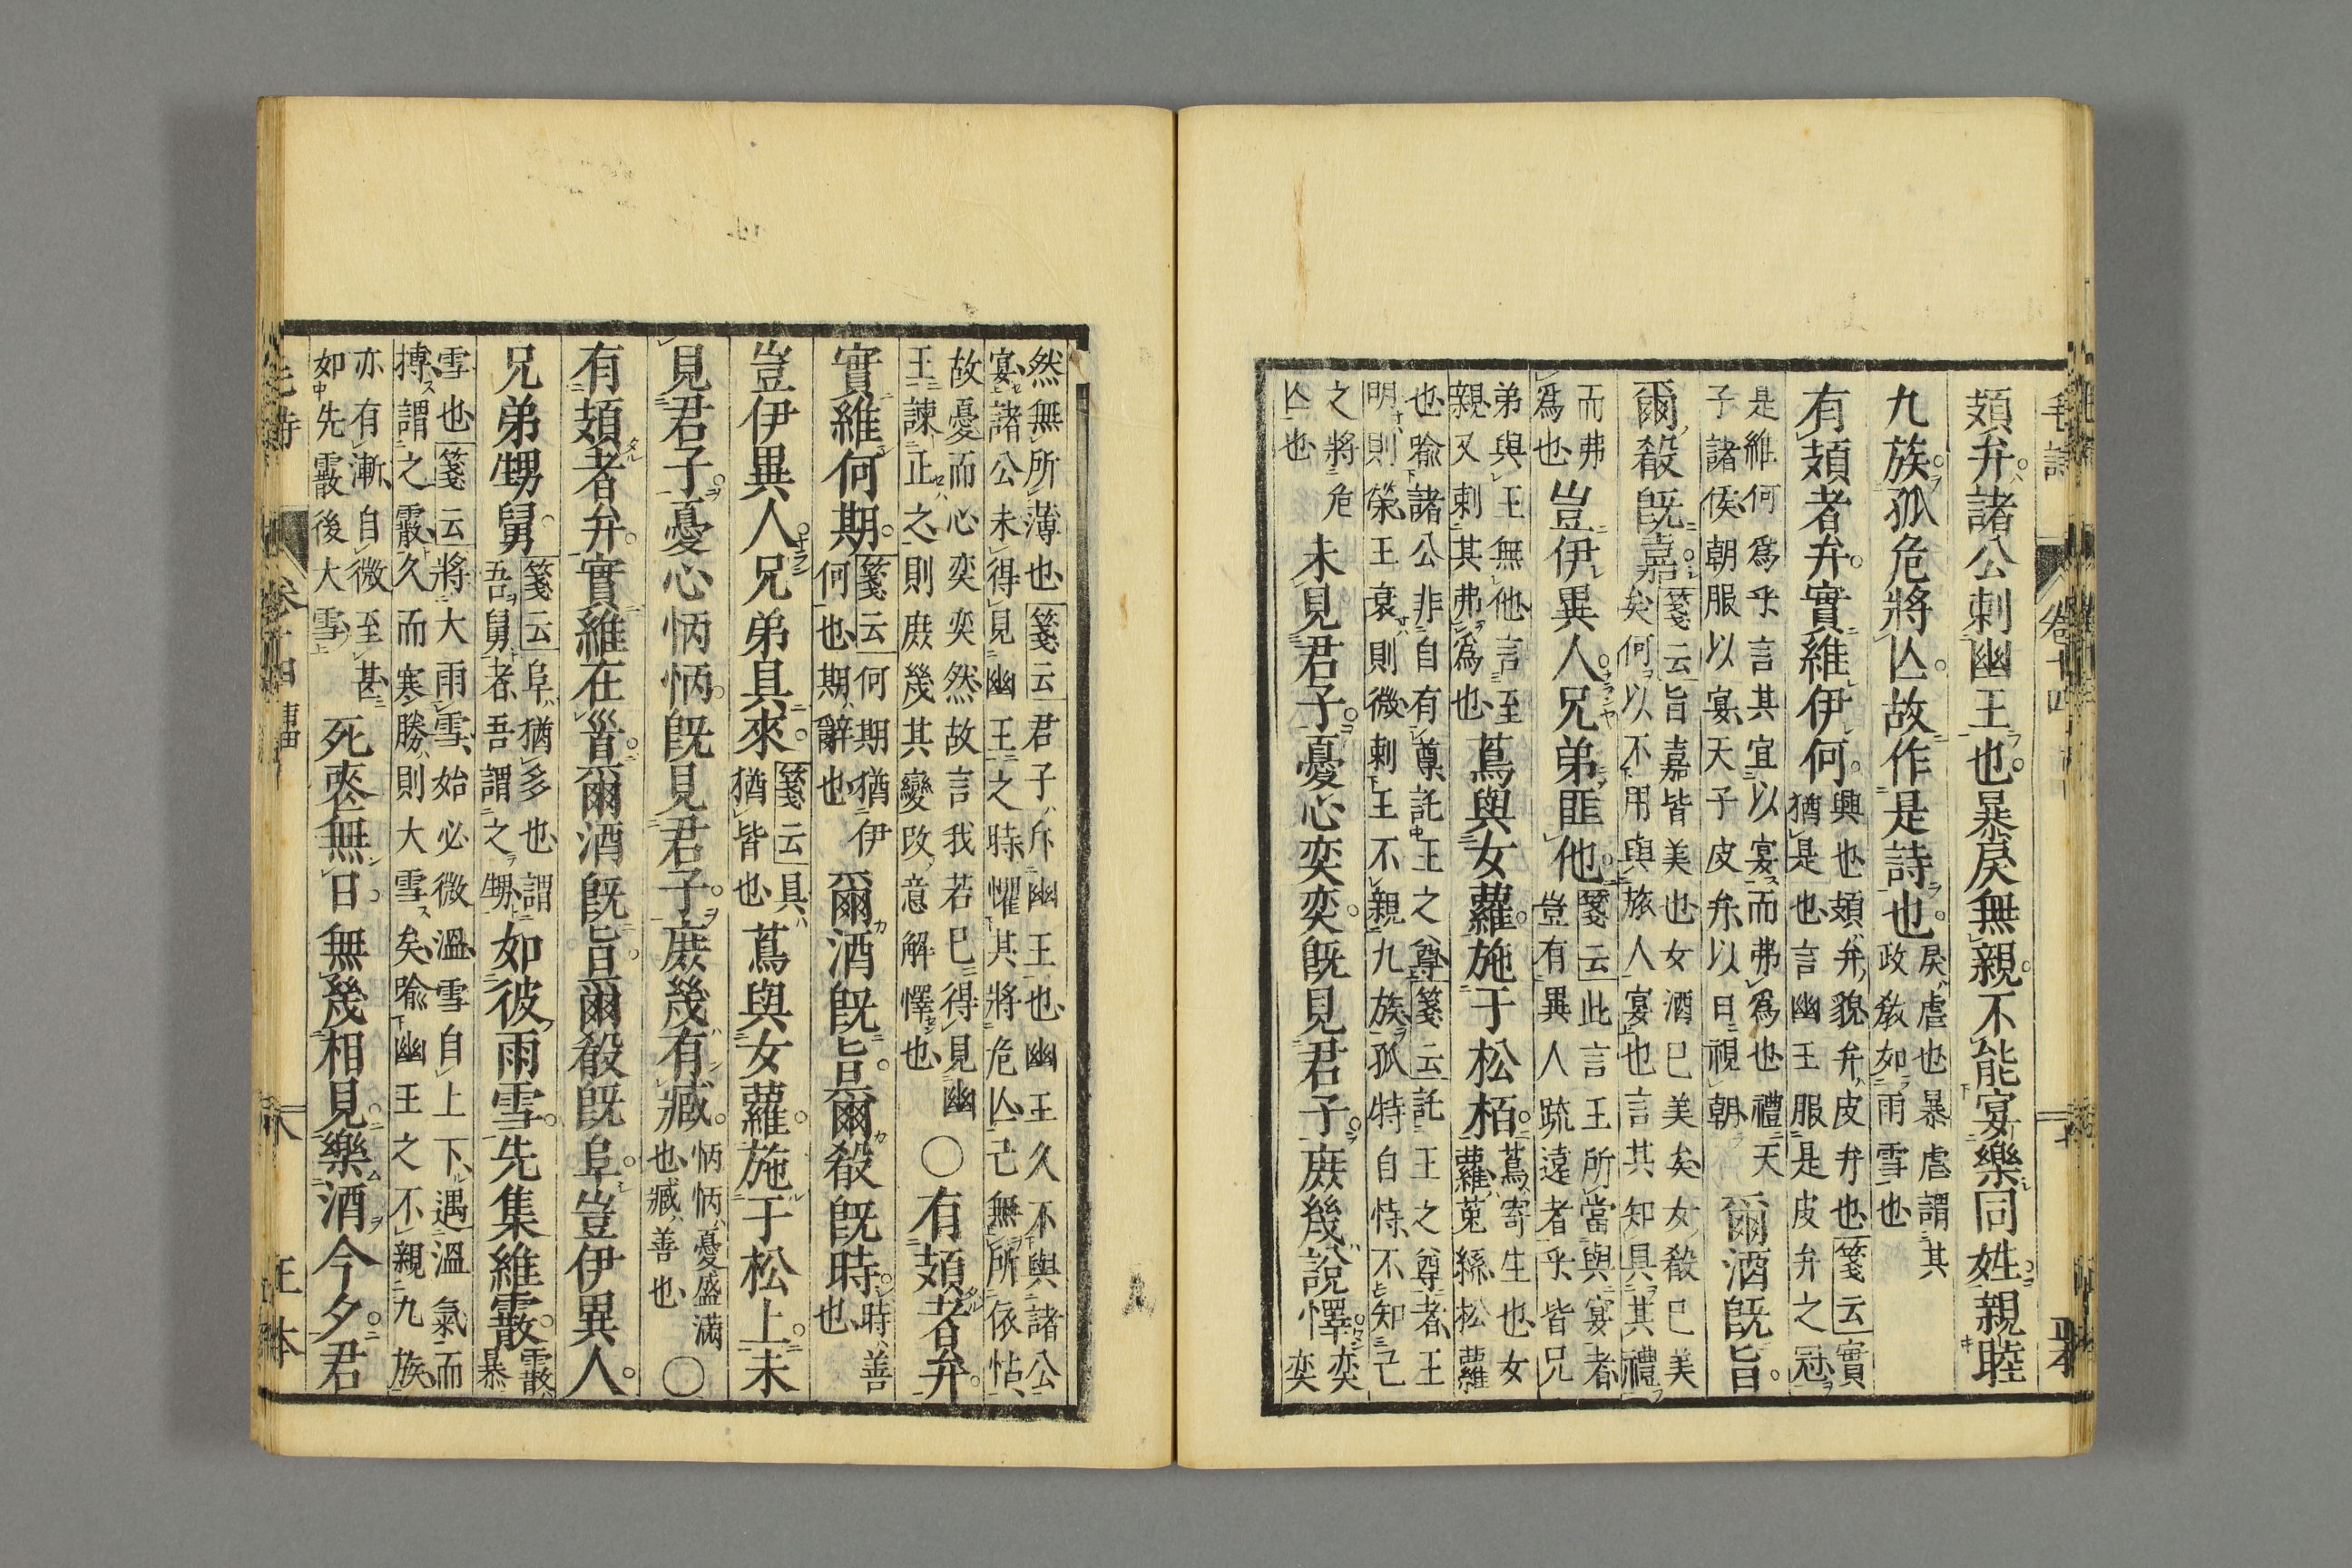 頍弁諸公刺幽王也暴戾無親不能宴樂同姓親睦
九族孤危將亾故作是詩也戾虐也暴虐謂其
政敎如雨雪也
有頍者弁實維伊何興也頍弁貌弁皮弁也箋云實
猶是也言幽王服是皮弁之冠
是維何爲乎言其宜以宴而弗爲也禮天
子諸侯朝服以宴天子皮弁以日視朝
爾酒旣旨
爾殽旣嘉箋云旨嘉皆美也女酒已美矣女殽已美
矣何以不用與族人宴也言其知具其禮
而弗
爲也
豈伊異人兄弟匪他箋云此言王所當與宴者
豈有異人疏遠者乎皆兄
弟與王無他言至
親又刺其弗爲也
蔦與女蘿施于松栢蔦寄生也女
蘿菟絲松蘿
也喩諸公非自有尊託王之尊箋云託王之尊者王
明則榮王衰則微刺王不親九族孤特自恃不知己
之將危
亾也
未見君子憂心奕奕旣見君子庶幾說懌奕
奕
然無所薄也箋云君子斥幽王也幽王久不與諸公
宴諸公未得見幽王之時懼其將危亾己無所依怙
故憂而心奕奕然故言我若已得見幽
王諫正之則庶幾其變改意解懌也
○有頍者弁
實維何期箋云何期猶伊
何也期辭也
爾酒旣旨爾殽旣時時善
也
豈伊異人兄弟具來箋云具
猶皆也
蔦與女蘿施于松上未
見君子憂心怲怲旣見君子庶幾有臧怲怲憂盛滿
也臧善也
○
有頍者弁實維在首爾酒旣旨爾殽旣阜豈伊異人
兄弟甥舅箋云阜猶多也謂
吾舅者吾謂之甥
如彼雨雪先集維霰霰
暴
雪也箋云將大雨雪始必微溫雪自上下遇溫氣而
摶謂之霰久而寒勝則大雪矣喩幽王之不親九族
亦有漸自微至甚
如先霰後大雪
死喪無日無幾相見樂酒今夕君